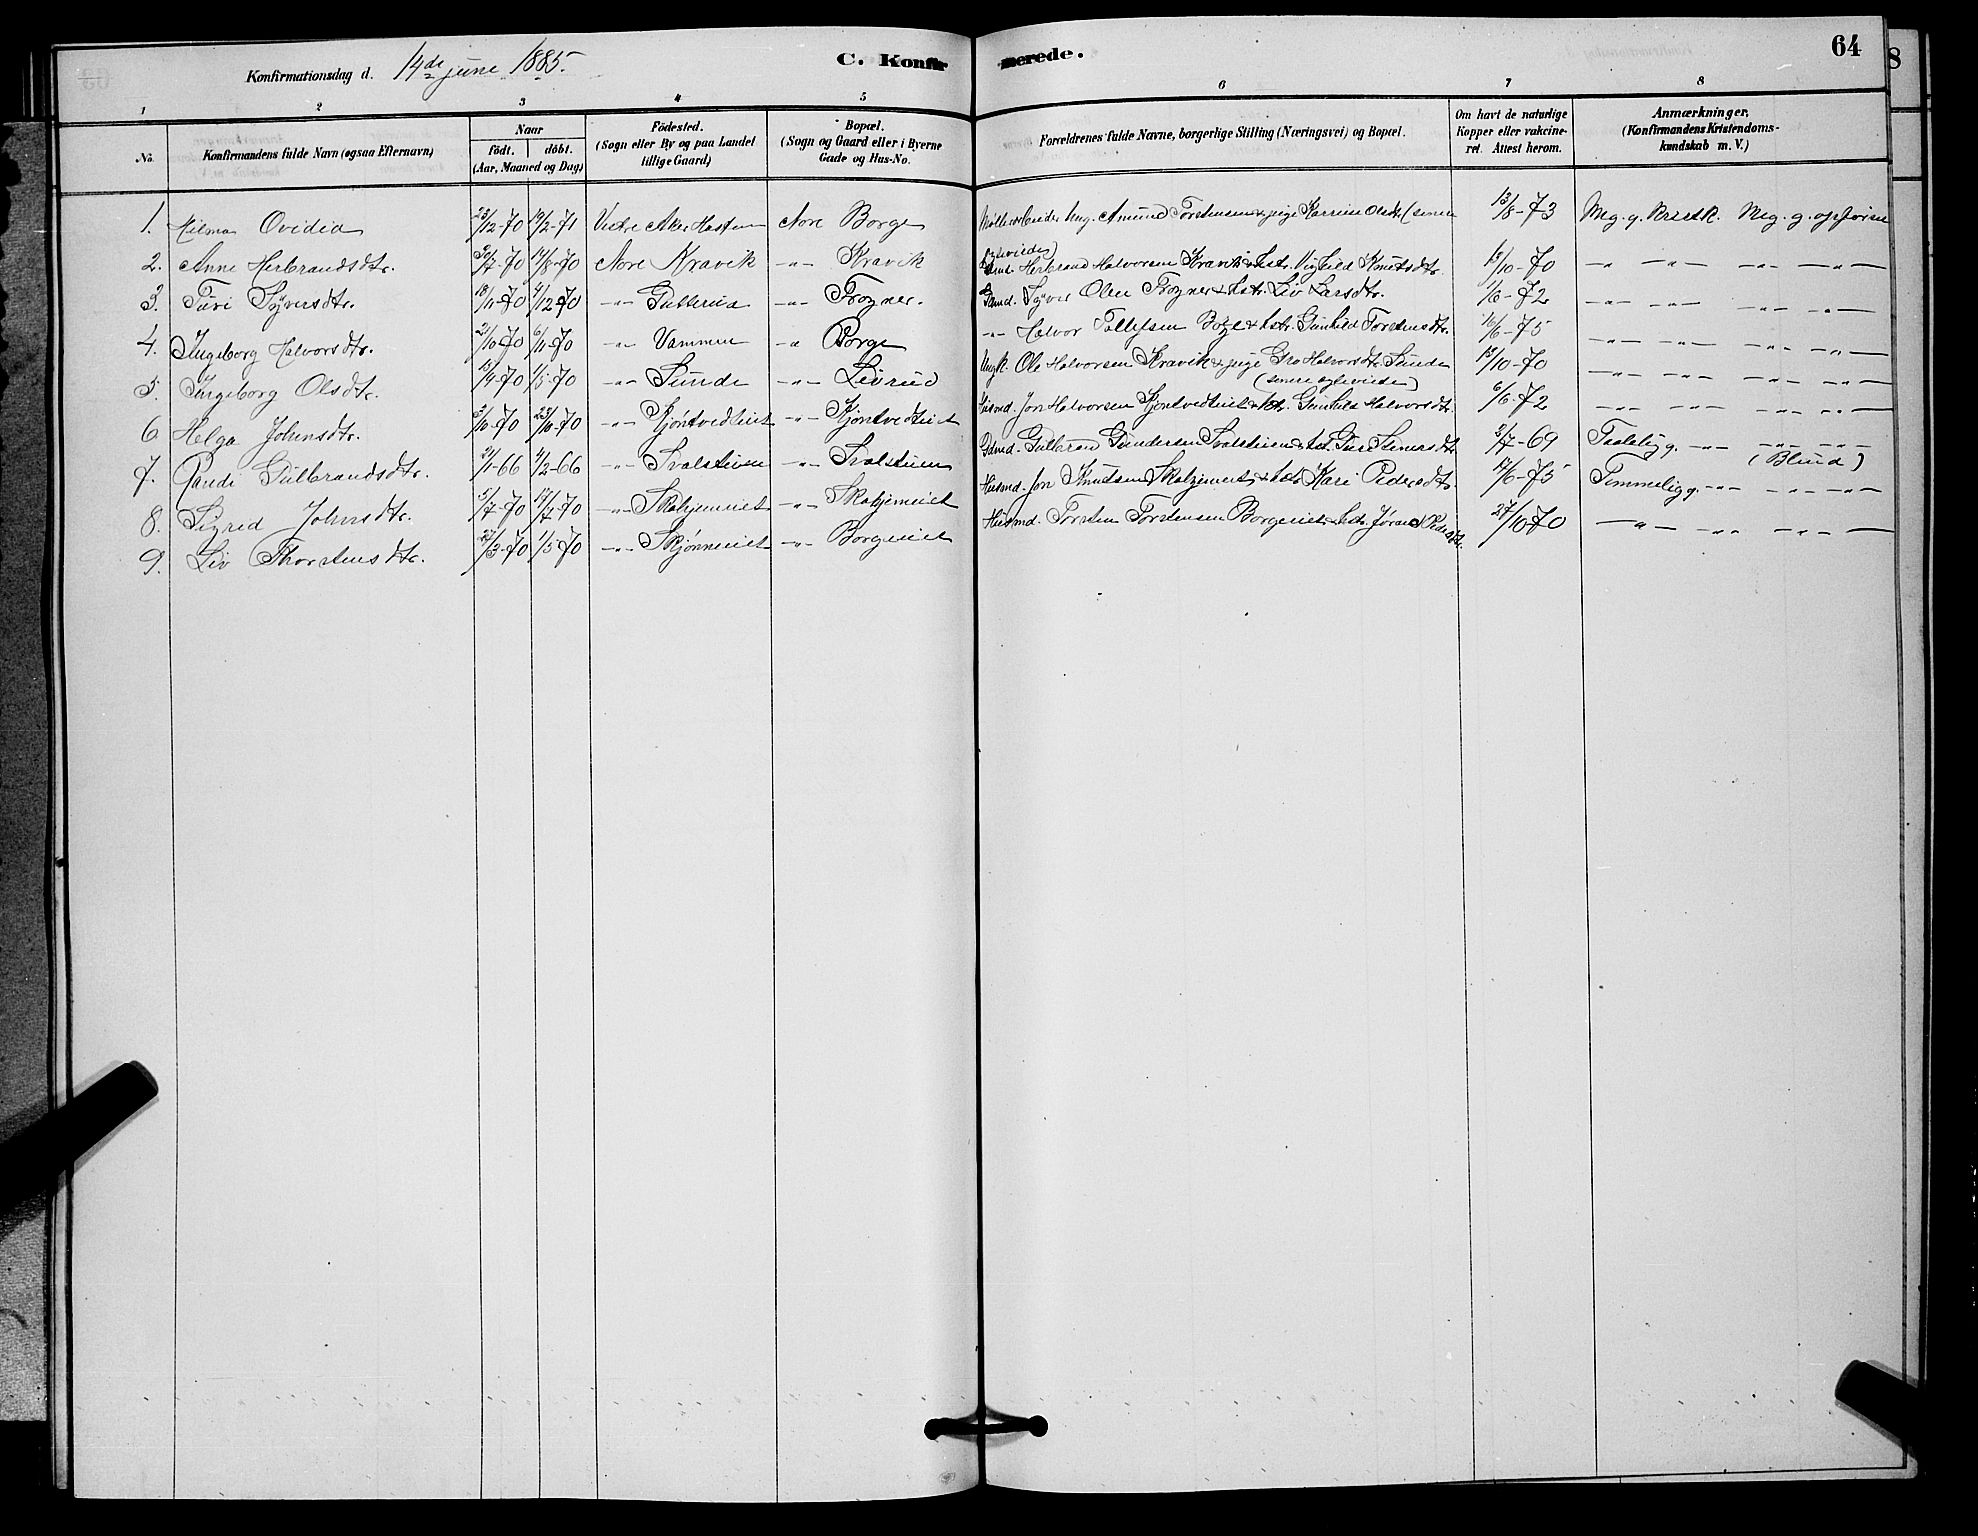 Konfirmationsdag d. 14de june 1885.
C. Konfirmerede.
64
1 2 3 4 5 6 7 8
No.
Konfirmandens fulde Navn (ogsaa Efternavn)
Naar
födt. döbt.
(Aar, Maaned og Dag)
Födested.
(Sogn eller By og paa Landet
tillige Gaard)
Bopæl.
(Sogn og Gaard eller i Byerne
Gade og Hus-No.
Forældrenes fulde Navne, borgerlige Stilling (Næringsvei) og Bopæl.
Om havt de naturlige
Kopper eller vakcine-
ret. Attest herom.
Anmærkninger.
(Konfirmandens Kristendoms-
kundskab m. V.)
1. Hilma Ovidia 23/12-70 19/2-71 Vestre Aker Nore Borge Ung. Amund Torstensen & pige Karrine Olsdtr. (senere 13/8-73 Meg. g. Kristk. Meg. g. opførsel
ægteviede)
2. Anne Herbrandsdtr. 30/7-70 14/8-70 Nore Kravik -"- Kravik Herbrand Halvorsen Kravik & hstr. Vighild Knutsdtr. 13/10-70 -"- -"- -"- -"-
3. Turi Syversdtr. 18/11-70 4/12-70 -"- Gullerud -"- Frogner. Gamd. Syver Olen Frogner & hstr. Liv Larsdtr. 1/6-72 -"- -"- -"- -"-
4. Ingeborg Halvorsdtr. 21/10-70 6/11-70 -"- Vammen -"- Borge -"- Halvor Tollefsen & hstr. Gunhild Torstensdtr. 16/6-75 -"- -"- -"- -"-
5. Ingeborg Olsdtr. 13/4-70 1/5-70 -"- Sunde -"- Livrud Ungk. Ole Halvorsen Kravik & pige Gro Halvorsdtr. Sunde 13/10-70 -"- -"- -"- -"-
(senere ægteviede)
6 Helga Johnsdtr. 3/10-70 23/10-70 -"- Kjöntvedteiet -"- Kjöntvedteiet Husmd. Jon Halvorsen Kjöntvedteiet & hstr. Gunhild Halvorsdtr. 6/6-72 -"- -"- -"- -"-
7. Randi Gulbrandsdtr. 21/11-66 4/2-66 -"- Svalstuen -"- Svalstuen Gulbrand Gundersen Svalstuen & hst. 2/7-69 Taalelig g. -"- -"- -"-
(Blind)
8. Sigrid Johnsdtr. 5/7-70 17/7-70 -"- -"- Husmd. Jon Knutsen & hstr. Kari Pedersdtr. 17/6-75 Temmelig g. -"- -"- -"-
9. Liv Thorstensdtr. 27/3-70 1/5-70 -"- Skjönneeiet -"- Borgeeiet Husmd. Torsten Torstensen Borgeeiet & hstr. Jørand Pedersdtr. 27/10-70 -"- -"- -"- -"-